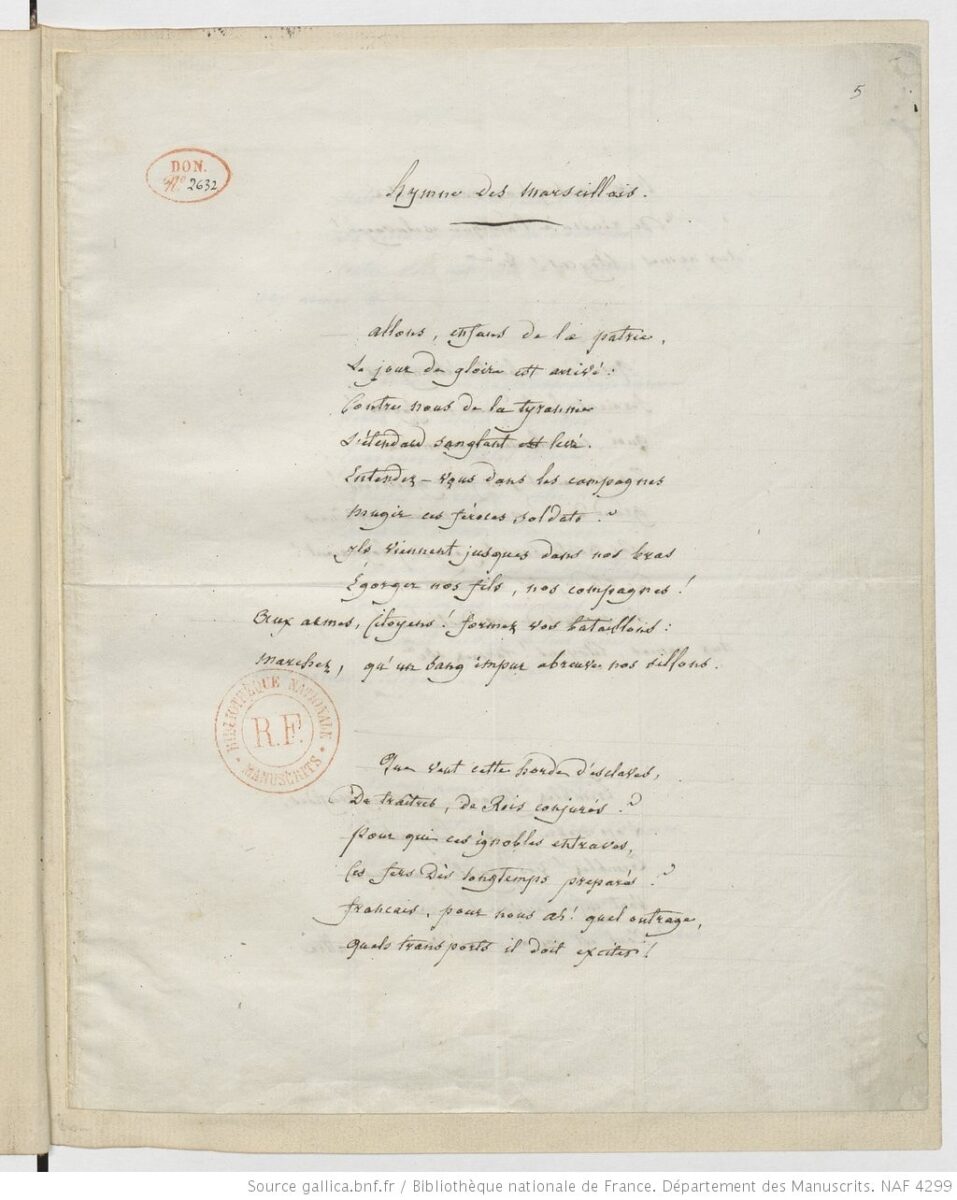 5
DON.
Nº 2632
hymne des marseillais.
allons, enfans de la patrie,
Le jour de gloire est arrivé:
Contre nous de la tyrannie
L'étendard sanglant est levé.
Entendez-vous dans les campagnes
Mugir ces féroces soldats?
Ils viennent jusques dans nos bras
Égorger nos fils, nos compagnes!
Aux armes, Citoyens! formez vos bataillons:
Marchez, qu'un sang impur abreuve nos sillons.
BIBLIOTHÈQUE NATIONALE
R.F.
MANUSCRITS
Que veut cette horde d'esclaves,
De traîtres, de Rois conjurés?
pour qui ces ignobles entraves,
Ces fers dès longtemps preparés?
francais, pour nous ah! quel outrage,
quels transports il doit exciter!
Source gallica.bnf.fr / Bibliothèque nationale de France. Département des Manuscrits. NAF 4299